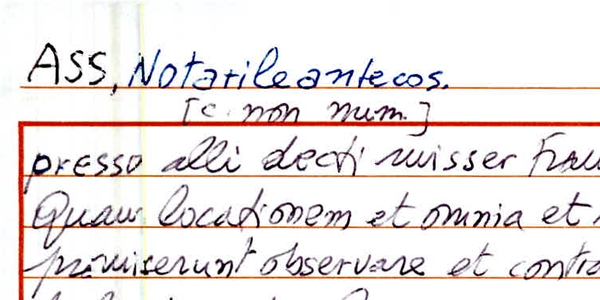 ASS, Notarile antecos.
[c. non num.]
presso alli decti misser Fran
Quam locationem et omnia et
promiserunt observare et contra